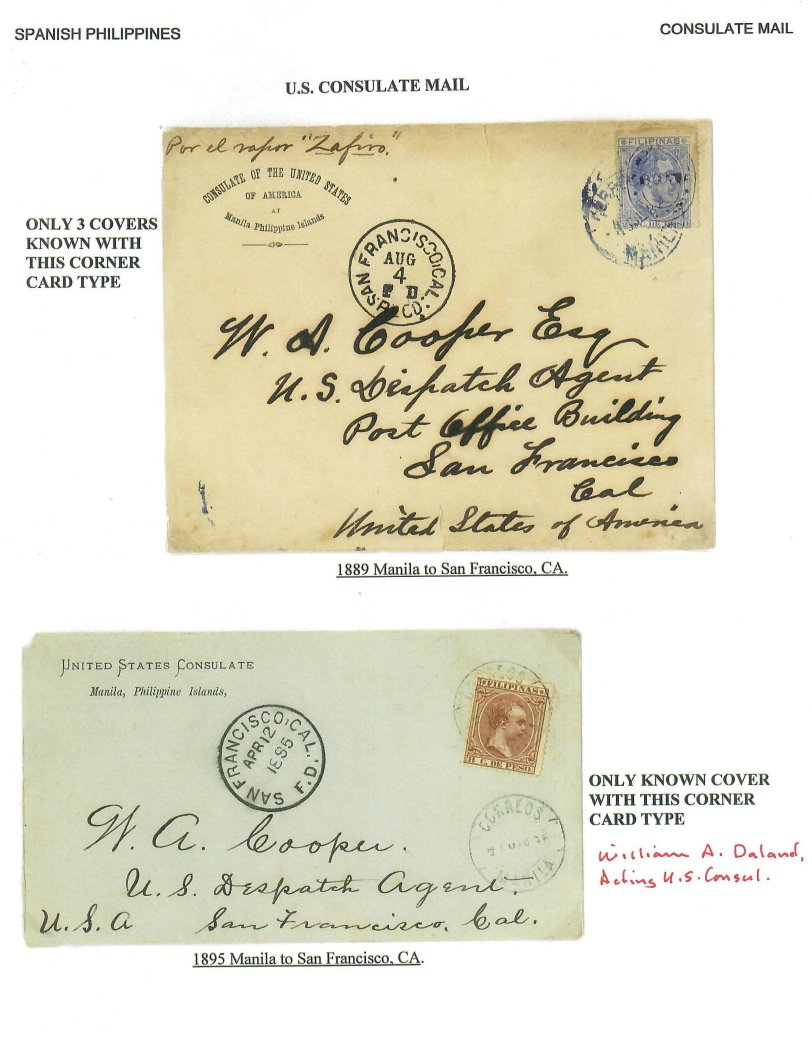 SPANISH PHILIPPINES
CONSULATE MAIL
U.S. CONSULATE MAIL
Por el vapor "Zafiro."
CONSULATE OF THE UNITED STATES
OF AMERICA
AT
Manila Philippine Islands
FILIPINAS
DE PESO
MANILA
ONLY 3 COVERS
KNOWN WITH
THIS CORNER
CARD TYPE
SAN FRANCISCO, CAL.
AUG
4
F D
REC'D.
W. A. Cooper Esq
U.S. Despatch Agent
Post Office Building
San Francisco
Cal
United States of America
1889 Manila to San Francisco, CA.
UNITED STATES CONSULATE
Manila, Philippine Islands,
CORREOS
FILIPINAS
8 C. DE PESO
SAN FRANCISCO, CAL.
APR 12
1895
F.D.
ONLY KNOWN COVER
WITH THIS CORNER
CARD TYPE
William A. Daland,
Acting U.S. Consul.
CORREOS
MANILA
W. A. Cooper.
U.S. Despatch Agent.
U.S.A San Francisco, Cal.
1895 Manila to San Francisco, CA.